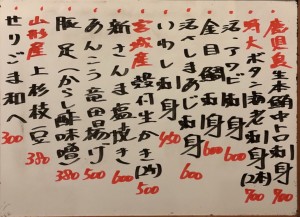 鹿児島産生本鮪中とろ刺身 900
特大ボタンあ老刺身(2本) 700
活アワビ刺身 600
金目鯛刺身 600
活〆しまあじ刺身 600
いわし刺身 450
宮城産殻付生かき(2ケ) 500
新さんま塩焼き 600
あんこう竜田揚げ 500
豚足〜からし酢味噌 380
山形産上杉枝豆 380
せりごま和へ 300